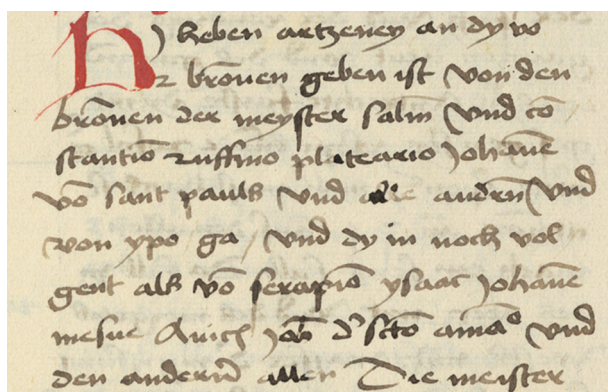 Hj heben artzeney an dy vo
r bronen geben ist von den
bronen der meyster salm vnd co
stantio ruffino plateario johane
vo sant pauls vnd alle andern vnd
von ypo ga vnd dy in noch vol
gent als vo serapio ysaac johane
mesue Auich joh d scto ama vnd
den andern allen Die meister